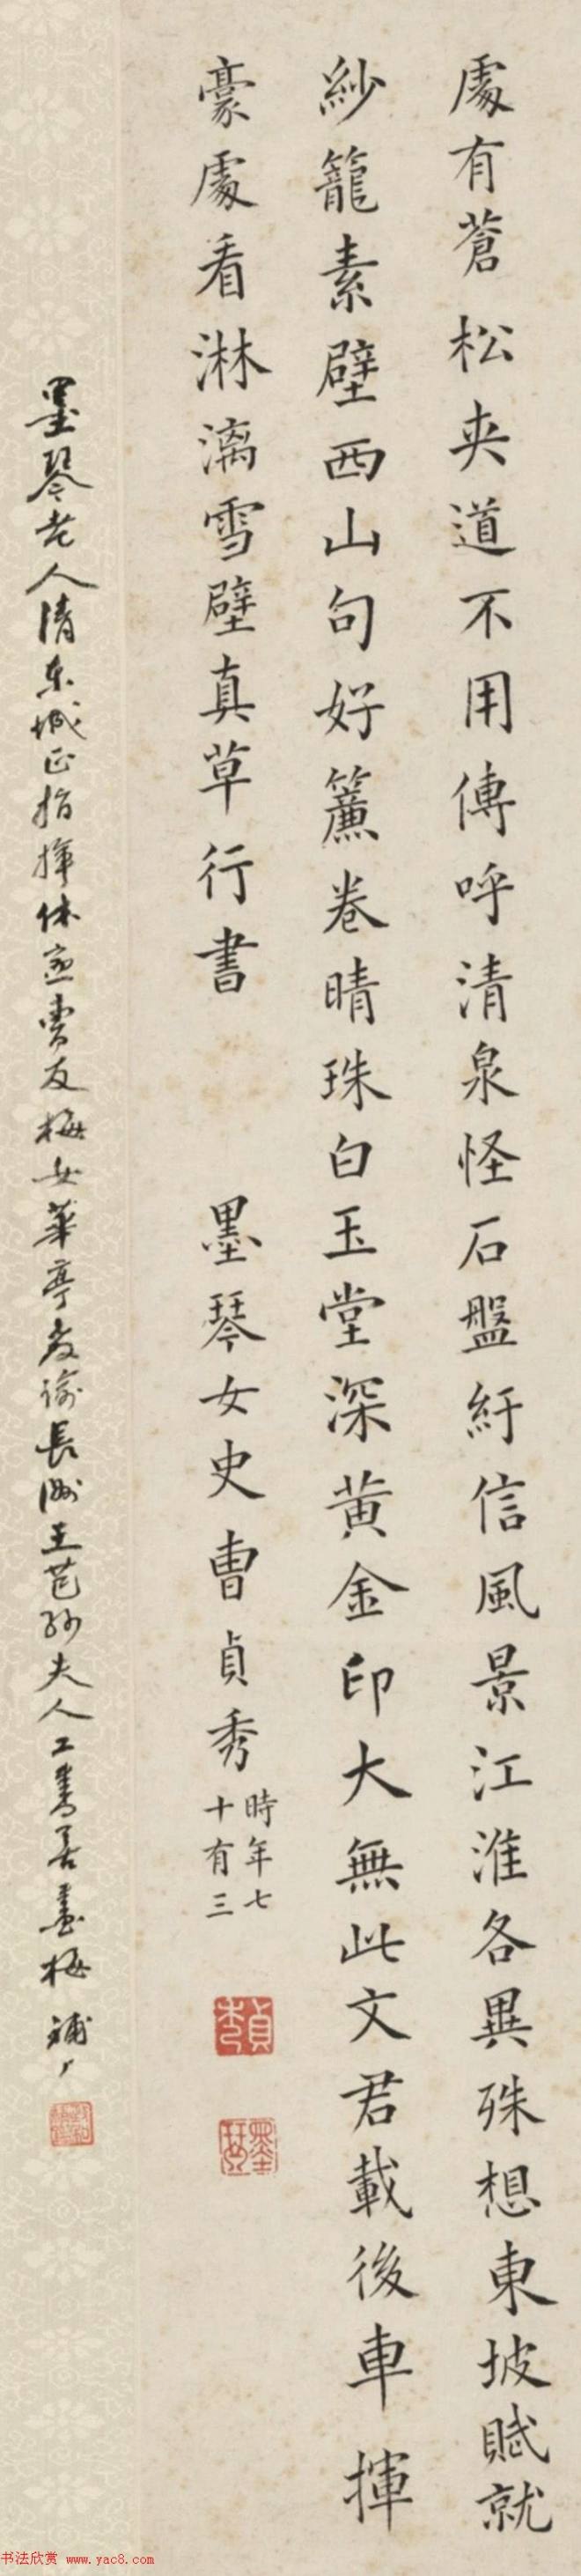 處有蒼松夾道不用傳呼清泉怪石盤紆信風景江淮各異殊想東坡賦就
紗籠素壁西山句好簾卷晴珠白玉堂深黃金印大無此文君載後車揮
豪處看淋漓雪壁真草行書
墨琴女史曹貞秀
時年七
十有三
貞秀
墨琴
墨琴老人清東城正指揮休寧曹友梅女華亭教諭長洲王芑孫夫人工書善畫梅
书法欣赏 www.yac8.com